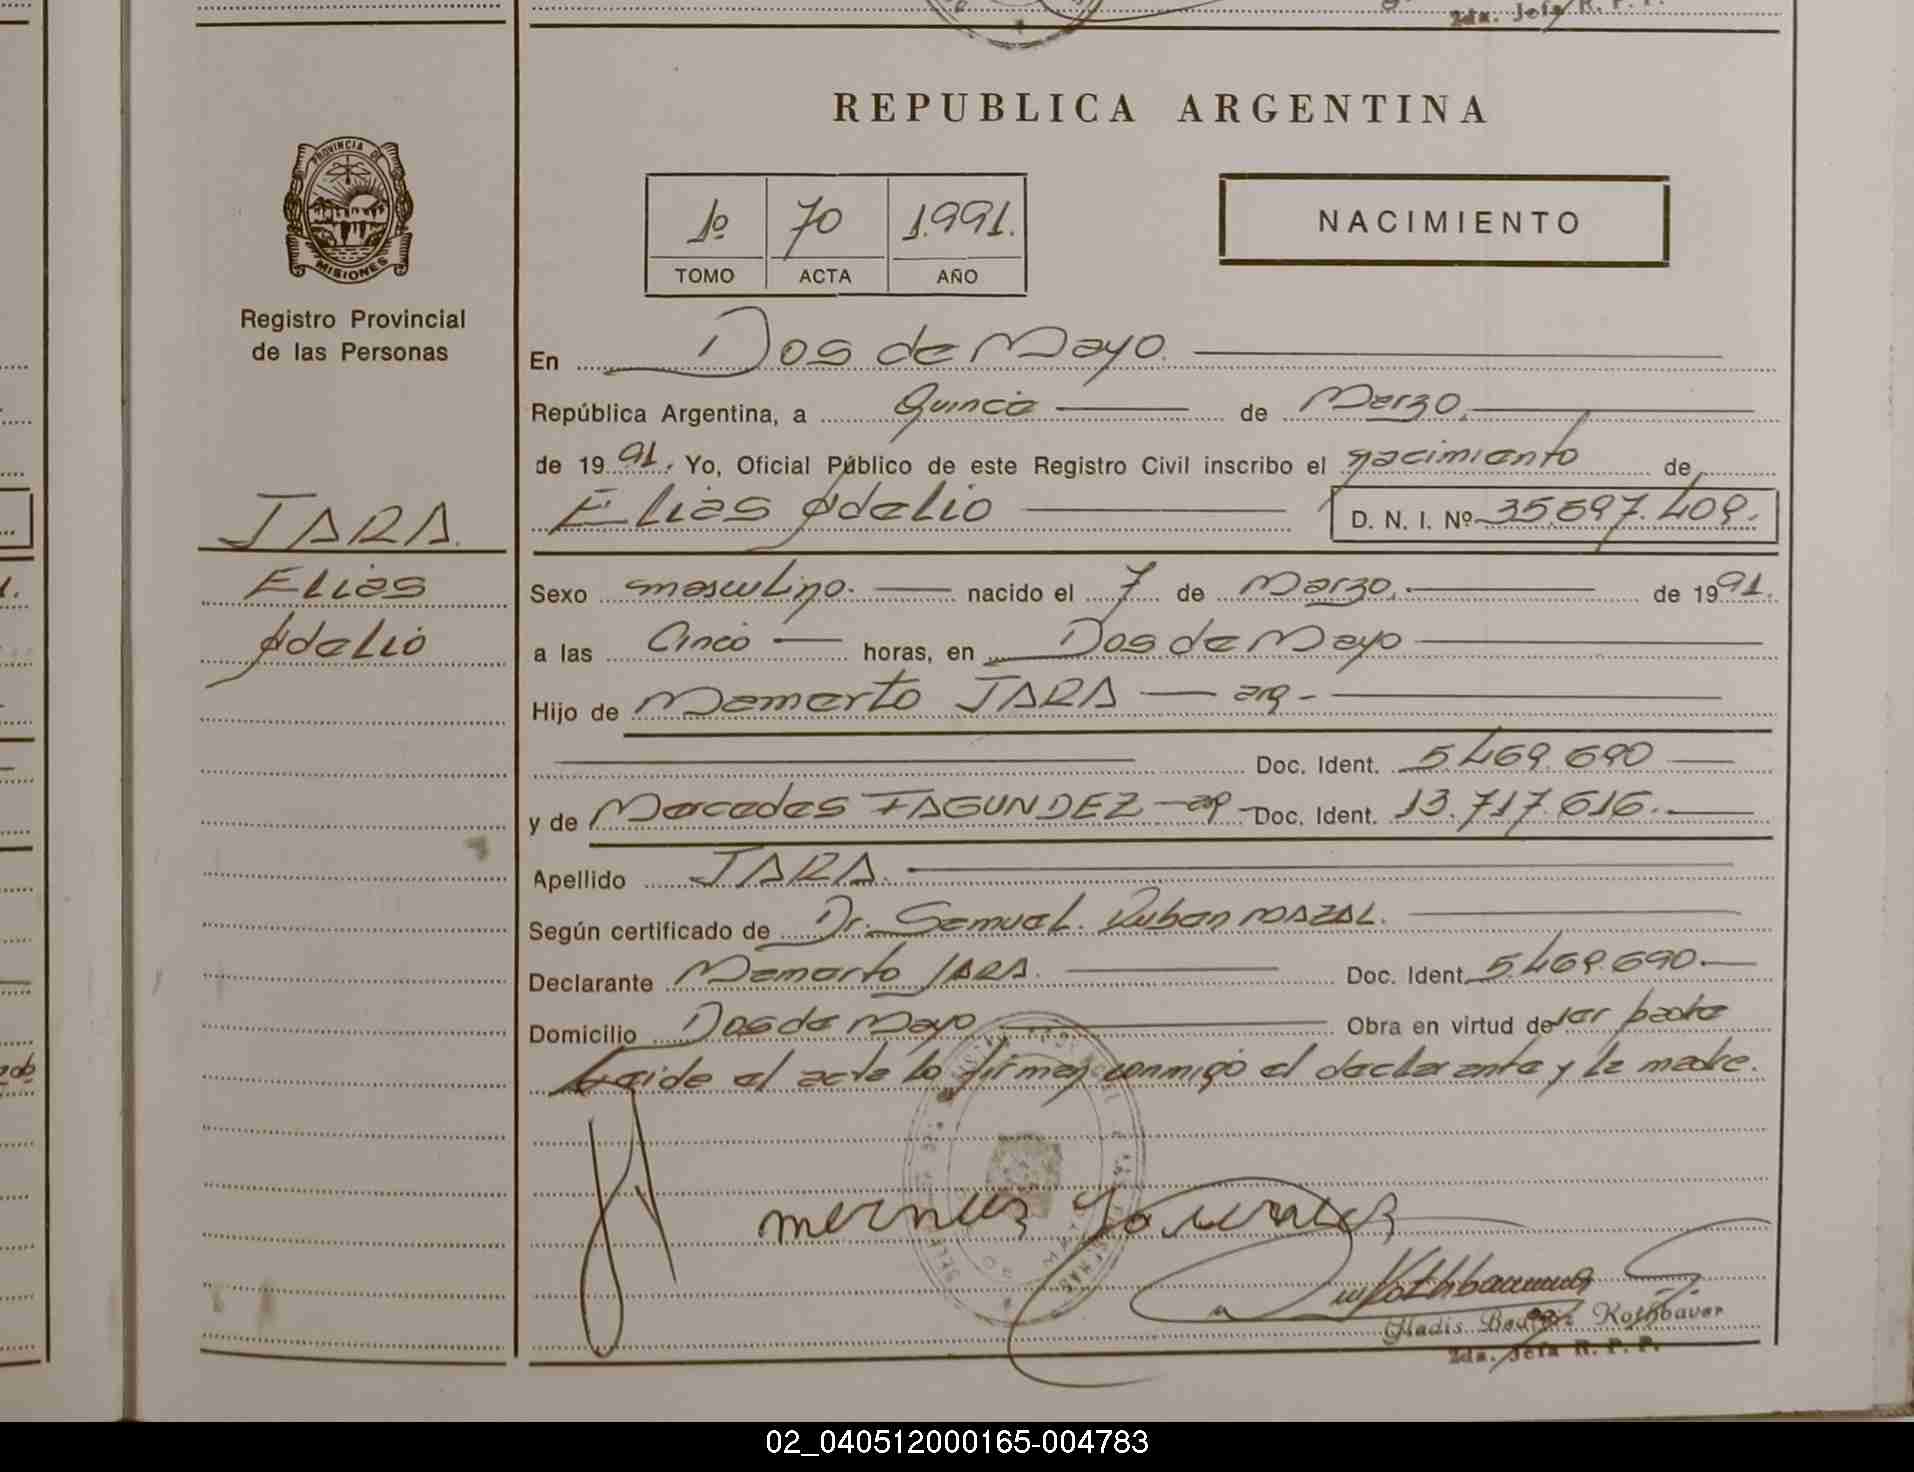 2da. Jefa R. P. P.
REPUBLICA ARGENTINA
PROVINCIA DE
MISIONES
Registro Provincial
de las Personas
1º 70 1.991.
TOMO ACTA AÑO
NACIMIENTO
En Dos de Mayo.
República Argentina, a Quince de Marzo.
de 1991. Yo, Oficial Público de este Registro Civil inscribo el nacimiento de
Elias Adelio D. N. I. Nº 35.697.409.
JARA.
Elias
Adelio
Sexo masculino. nacido el 7 de Marzo. de 1991.
a las Cinco horas, en Dos de Mayo
Hijo de Mamerto JARA arg-
Doc. Ident. 5.469.690
y de Mercedes FAGUNDEZ arg- Doc. Ident. 13.717.616.
Apellido JARA.
Según certificado de Dr. Samuel. Ruben MAZAL.
Declarante Mamerto JARA. Doc. Ident. 5.469.690
Domicilio Dos de Mayo Obra en virtud de ser padre
Leida el acta la firman conmigo el declarante y la madre.
Gladis Beatriz Kothbaver
2da. Jefa R. P. P.
02_040512000165-004783